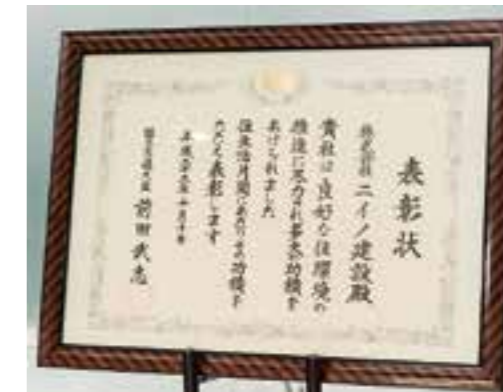 表彰状
株式会社 ニイノ建設殿
貴社は良好な住環境の
推進に尽力され多大な功績を
あげられました
住生活月間にあたりその功績を
たたえ表彰します
平成二十三年十月十日
国土交通大臣 前田武志